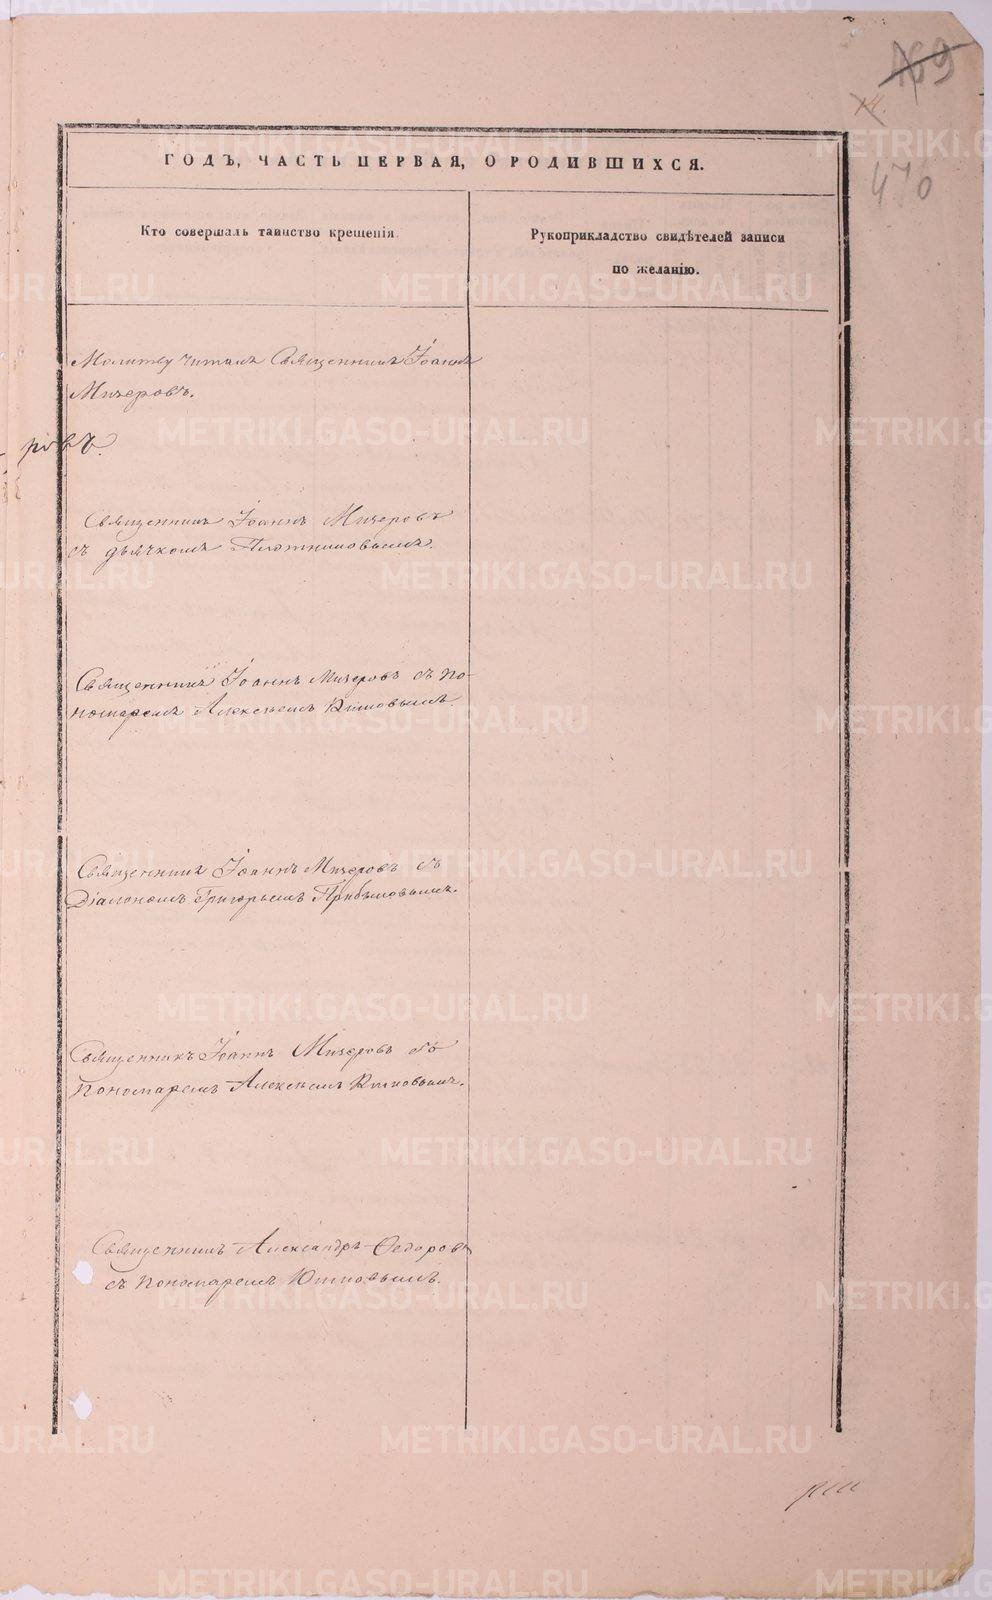 469
14.
ГОДЪ, ЧАСТЬ ПЕРВАЯ, О РОДИВШИХСЯ.
470
Кто совершалъ таинство крещенія.
Рукоприкладство свидѣтелей записи
по желанію.
Молитву читалъ Священникъ Іоаннъ
Мичеровъ.
ровъ.
Священникъ Іоаннъ Мичеровъ
съ дьячкомъ Плотниковымъ.
Священникъ Іоаннъ Мичеровъ съ по-
номаремъ Алексѣемъ
Священникъ Іоаннъ Мичеровъ съ
Діакономъ Григорьемъ Прибыловымъ.
Священникъ Іоаннъ Мичеровъ съ
пономаремъ Алексѣемъ
Священникъ Александръ Ѳедоровъ
съ пономаремъ
METRIKI.GASO-URAL.RU